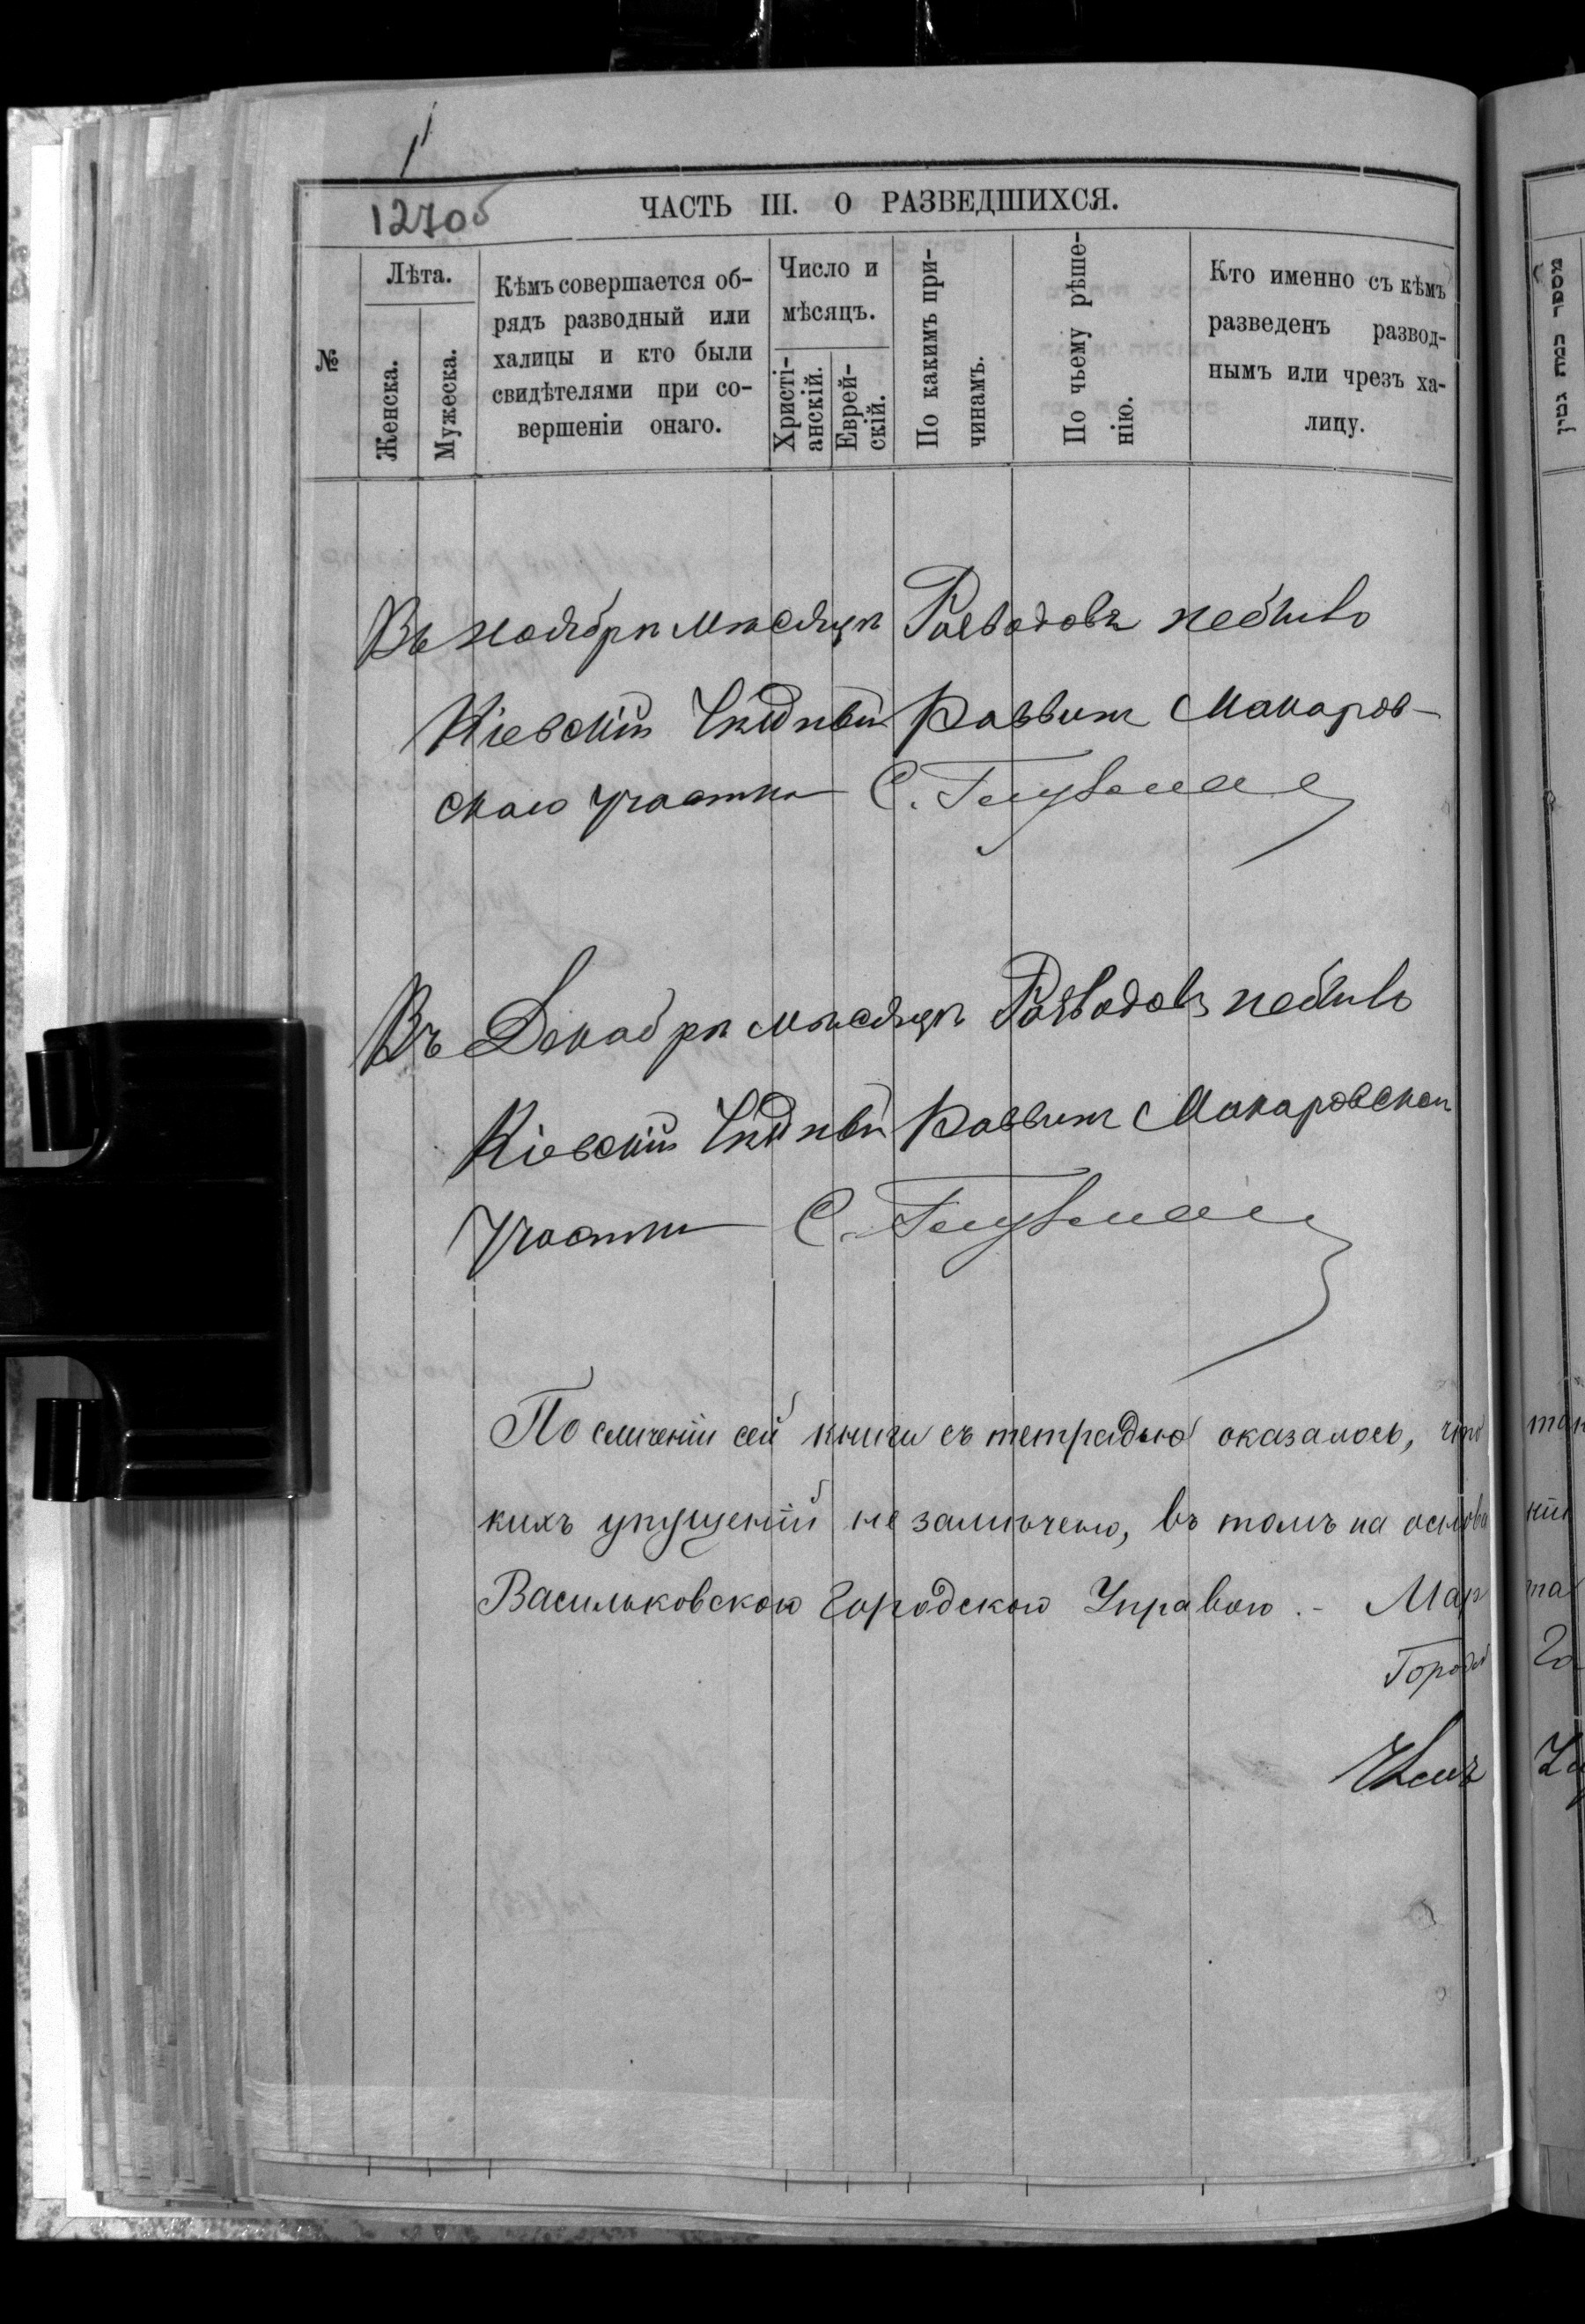 1270б
ЧАСТЬ III. О РАЗВЕДШИХСЯ.
№
Лѣта.
Женска.
Мужеска.
Кѣмъ совершается об-
рядъ разводный или
халицы и кто были
свидѣтелями при со-
вершеніи онаго.
Число и
мѣсяцъ.
Христі-
анскій.
Еврей-
скій.
По какимъ при-
чинамъ.
По чьему рѣше-
нію.
Кто именно съ кѣмъ
разведенъ развод-
нымъ или чрезъ ха-
лицу.
Въ ноябрѣ мѣсяцѣ Разводовъ небыло
Кіевскій Уѣздный Раввинъ Макаров-
скаго участка С.
Въ Декабрѣ мѣсяцѣ Разводовъ небыло
Кіевскій Уѣздный Раввинъ Макаровскаго
Участка С.
По сличеніи сей книги съ тетрадью оказалось, что
кихъ упущеній не замѣчено, въ томъ на основа
Васильковскою Городскою Управою. - Мар
Город
Членъ
מספר כמה גטין